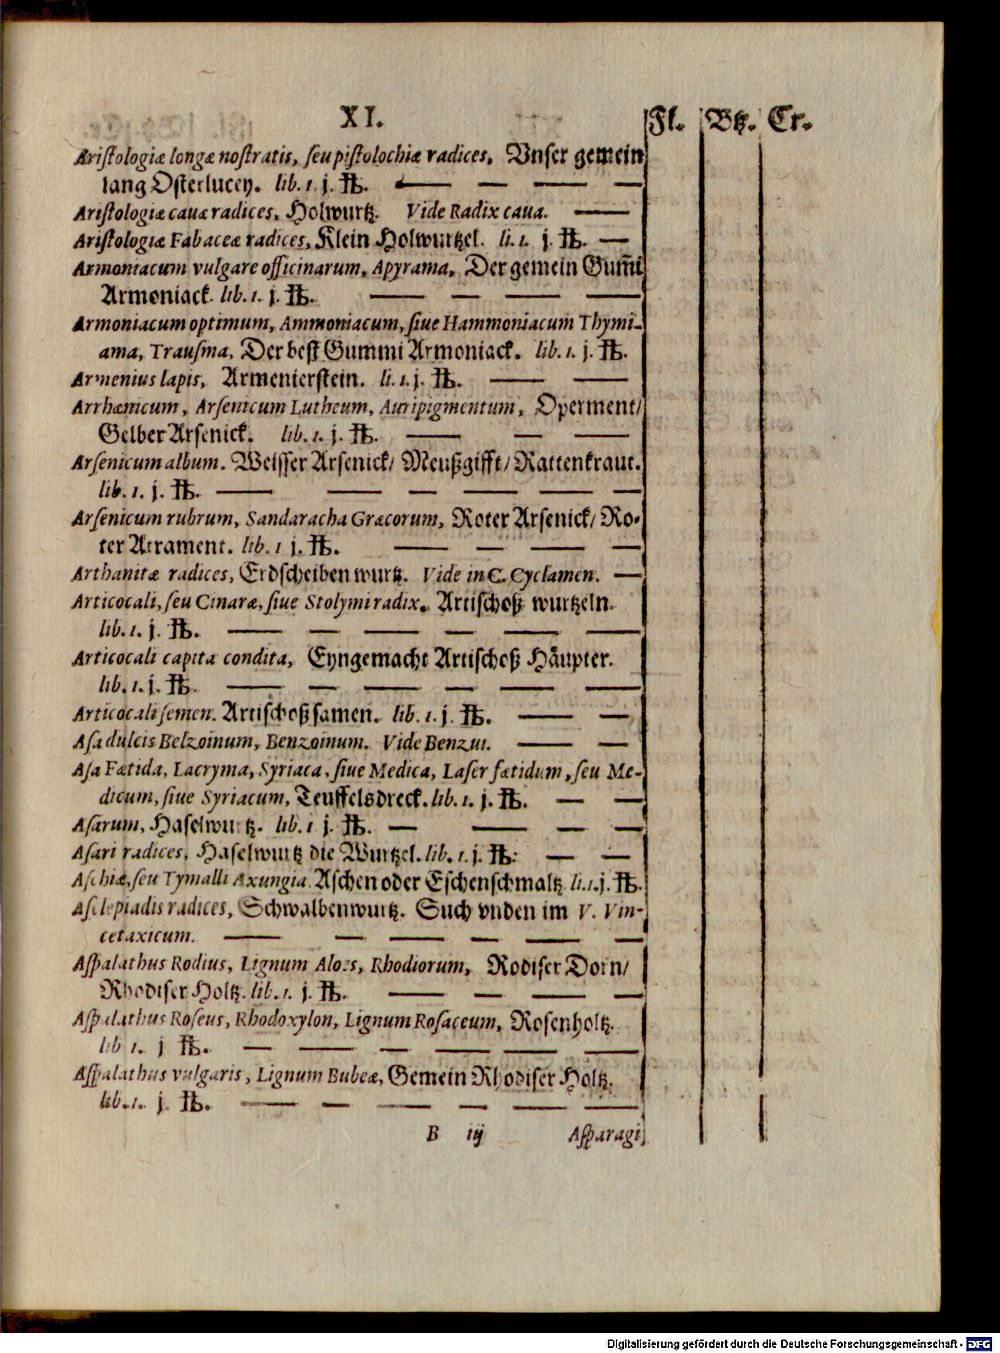 XI. Fl. Btz. Cr.
Aristologiæ longæ nostratis, seu pistolochiæ radices, Vnser gemein
lang Osterlucey. lib. 1. j. ℔.
Aristologiæ cauæ radices, Holwurtz. Vide Radix caua.
Aristologiæ Fabaceæ radices, Klein Holwurtzel. li. 1. j. ℔.
Armoniacum vulgare officinarum, Apyrama, Der gemein Gum̃i
Armoniack. lib. 1. j. ℔.
Armoniacum optimum, Ammoniacum, siue Hammoniacum Thymi-
ama, Trausma, Der best Gummi Armoniack. lib. 1. j. ℔.
Armenius lapis, Armenierstein. li. 1. j. ℔.
Arrhænicum, Arsenicum Lutheum, Auripigmentum, Operment/
Gelber Arsenick. lib. 1. j. ℔.
Arsenicum album. Weisser Arsenick/ Meußgifft/ Rattenkraut.
lib. 1. j. ℔.
Arsenicum rubrum, Sandaracha Græcorum, Roter Arsenick/ Ro-
ter Atrament. lib. 1 j. ℔.
Arthanitæ radices, Erdscheibenwurtz. Vide in C. Cyclamen.
Articocali, seu Cinaræ, siue Stolymi radix. Artischoß wurtzeln.
lib. 1. j. ℔.
Articocali capita condita, Eyngemacht Artischoß Häupter.
lib. 1. j. ℔.
Articocali semen. Artischoßsamen. lib. 1. j. ℔.
Asa dulcis Belzoinum, Benzoinum. Vide Benzui.
Asa Fætida, Lacryma, Syriaca, siue Medica, Laser fætidum, seu Me-
dicum, siue Syriacum, Teuffelsdreck. lib. 1. j. ℔.
Asarum, Haselwurtz. lib. 1 j. ℔.
Asari radices, Haselwurtz die Wurtzel. lib. 1. j. ℔.
Aschiæ, seu Tymalli Axungia. Aschen oder Eschenschmaltz. li. 1. j. ℔.
Asclepiadis radices, Schwalbenwurtz. Such vnden im V. Vin-
cetaxicum.
Aspalathus Rodius, Lignum Aloes, Rhodiorum, Rodiser Dorn/
Rhodiser Holtz. lib. 1. j. ℔.
Aspalathus Roseus, Rhodoxylon, Lignum Rosaceum, Rosenholtz.
lib 1. j ℔.
Aspalathus vulgaris, Lignum Bubeæ, Gemein Rhodiser Holtz.
lib. 1. j. ℔.
B iij Asparagi
Digitalisierung gefördert durch die Deutsche Forschungsgemeinschaft - DFG